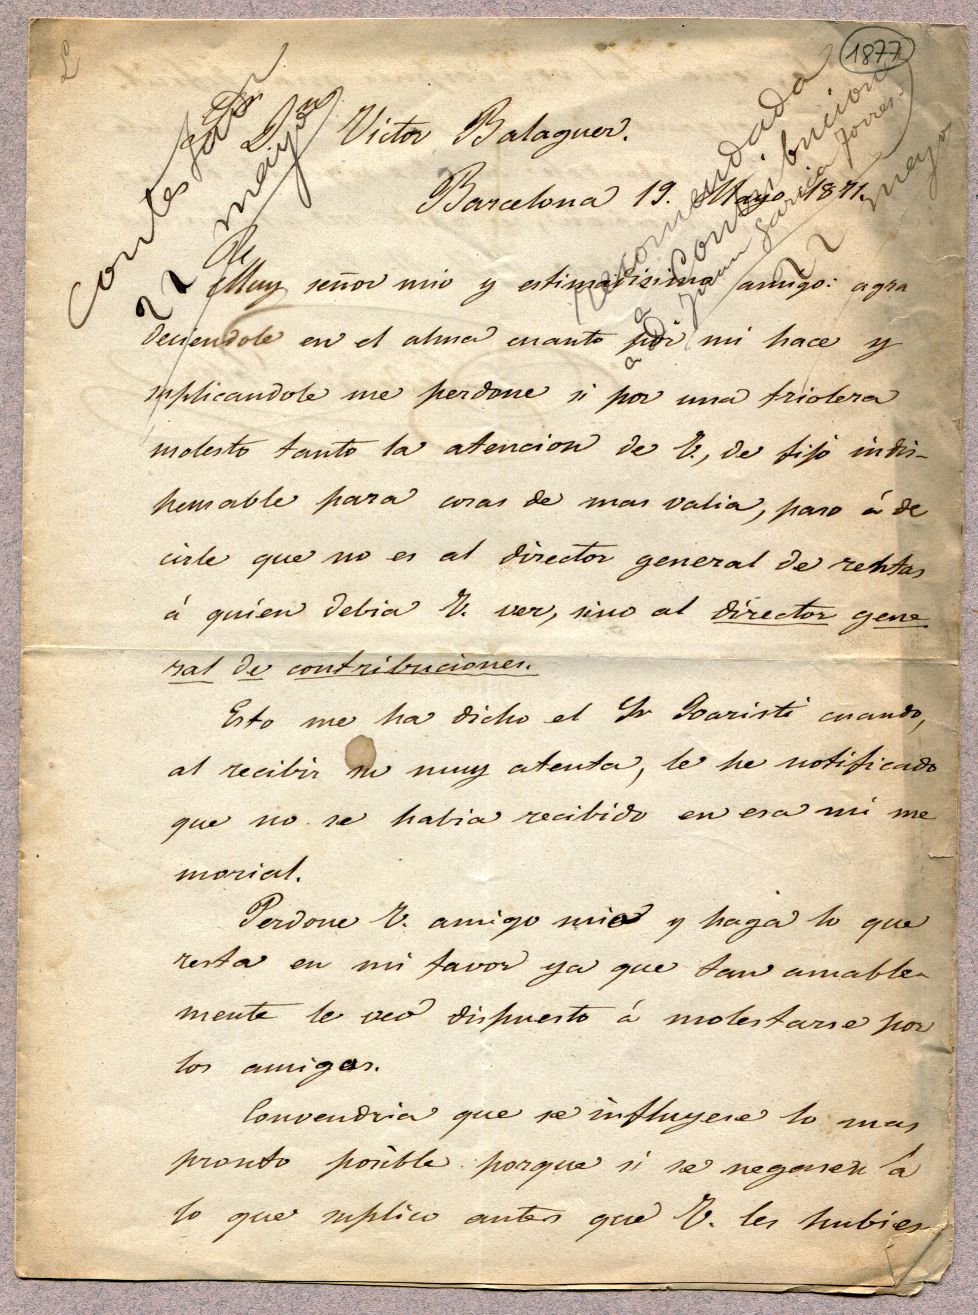 1877
Contestada
22 mayo
recomendada
a Contribuciones
a D. Juan Garcia Torres.
22 mayo
Sr. D. Victor Balaguer.
Barcelona 19. Mayo 1871.
Muy señor mio y estimadisimo amigo: agra
deciendole en el alma cuanto por mi hace y
suplicandole me perdone si por una friolera
molesto tanto la atencion de V., de fijo indis-
pensable para cosas de mas valia, paso á de
cirle que no es al director general de rentas
á quien debia V. ver, sino al director gene
ral de contribuciones.
Esto me ha dicho el Sr cuando,
al recibir su muy atenta, le he notificado
que no se habia recibido en esa mi me
morial.
Perdone V. amigo mio y haga lo que
resta en mi favor ya que tan amable-
mente le veo dispuesto á molestarse por
los amigos.
Convendria que se influyese lo mas
pronto posible porque si se negasen á
lo que suplico antes que V. les hubies